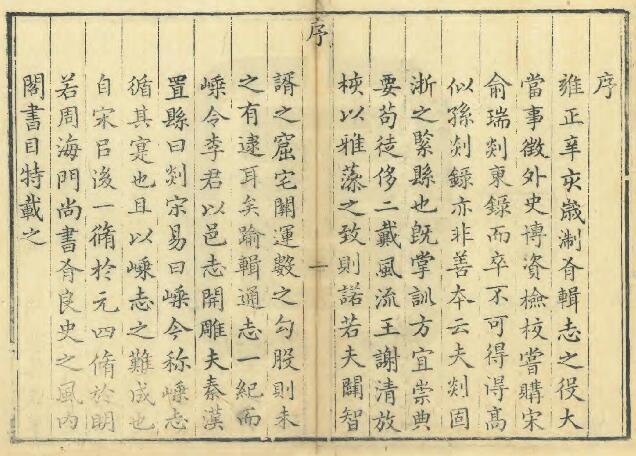 序
雍正辛亥歲制府輯志之役大
當事徵外史博資檢校嘗購宋
俞瑞剡東錄而卒不可得得高
似孫剡錄亦非善本云夫剡固
浙之緊縣也旣掌訓方宜崇典
要苟徒侈二戴風流王謝清放
梜以雅藻之致則諾若夫關智
序
一
諝之窟宅闡運數之勾股則未
之有逮耳矣踰輯通志一紀而
嵊令李君以邑志開雕夫秦漢
置縣曰剡宋易曰嵊今称嵊志
循其寔也且以嵊志之難成也
自宋吕後一脩於元四脩於明
若周海門尚書脊良史之風内
閣書目特載之